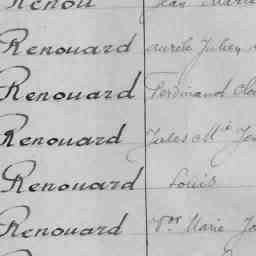 Renou Jean Marie
Renouard Aurèle Julien
Renouard Ferdinand
Renouard Jules Mie
Renouard Louis
Renouard Vor Marie